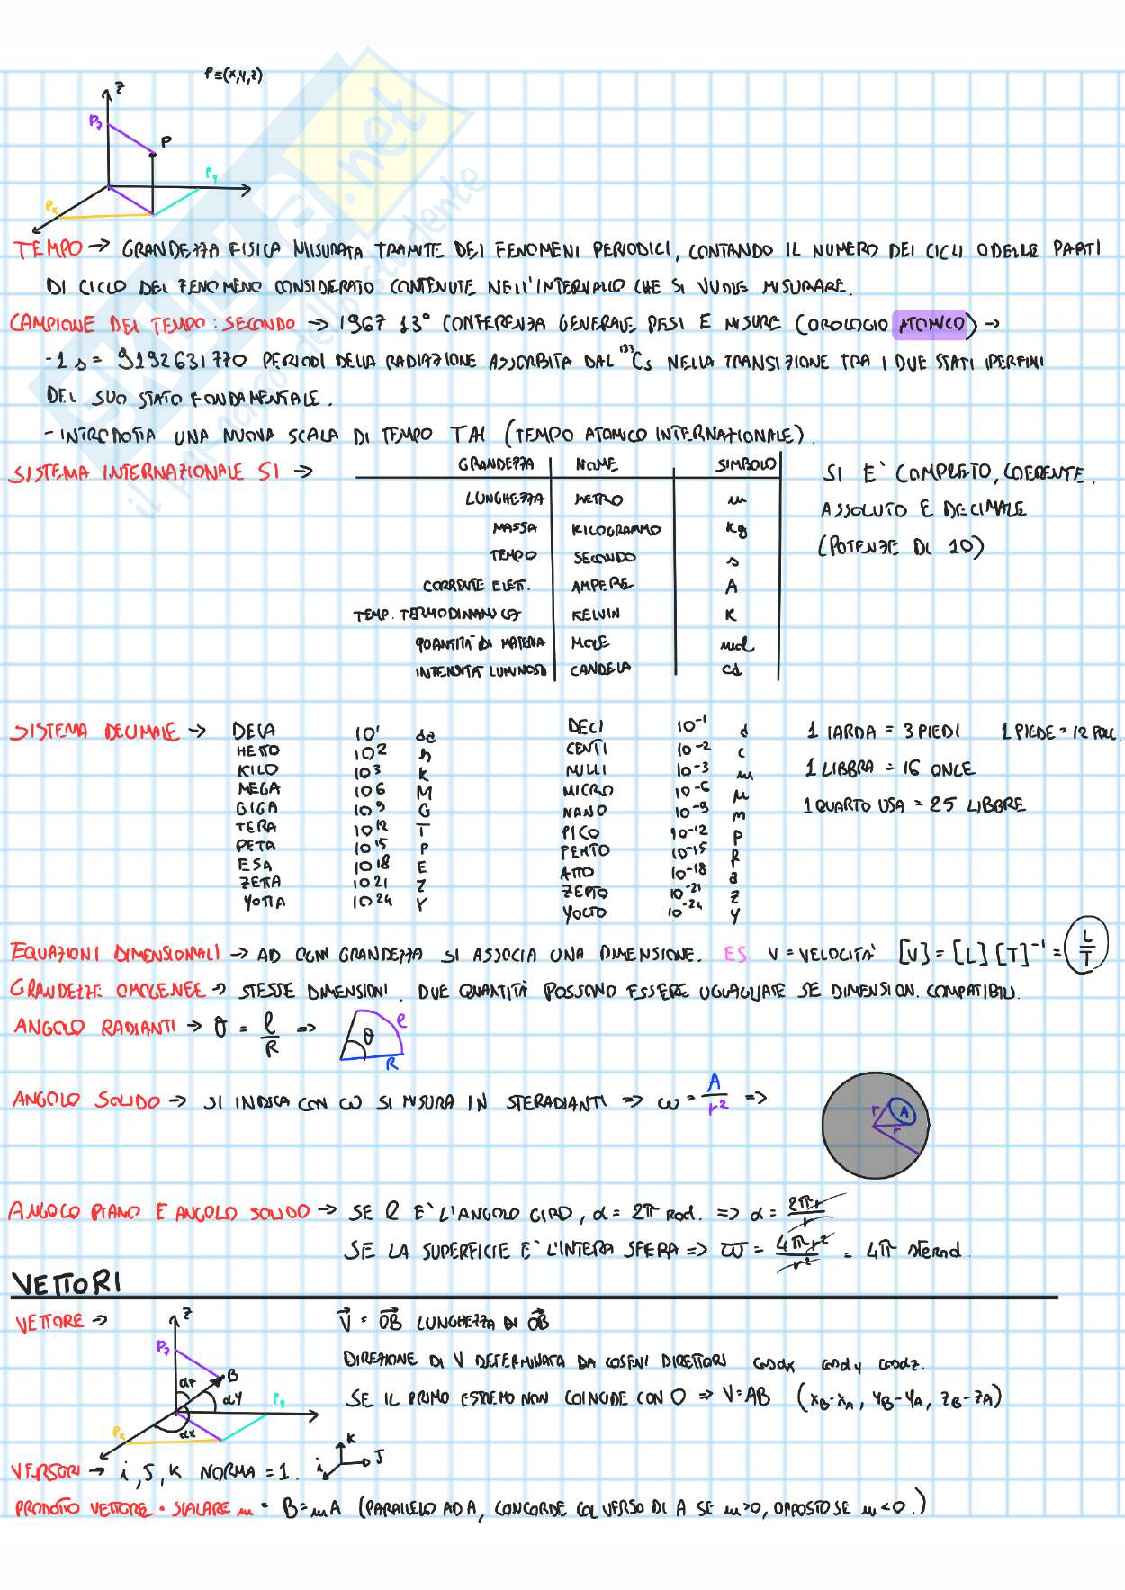 P=(x,y,z)
z
Pz
P
Py
Px
TEMPO → GRANDEZZA FISICA MISURATA TRAMITE DEI FENOMENI PERIODICI, CONTANDO IL NUMERO DEI CICLI O DELLE PARTI
DI CICLO DEL FENOMENO CONSIDERATO CONTENUTE NELL'INTERVALLO CHE SI VUOLE MISURARE.
CAMPIONE DEL TEMPO: SECONDO → 1967 13° CONFERENZA GENERALE PESI E MISURE (OROLOGIO ATOMICO) →
-1 s = 9192631770 PERIODI DELLA RADIAZIONE ASSORBITA DAL ¹³³Cs NELLA TRANSIZIONE TRA I DUE STATI IPERFINI
DEL SUO STATO FONDAMENTALE.
- INTRODOTTA UNA NUOVA SCALA DI TEMPO TAI (TEMPO ATOMICO INTERNAZIONALE).
SISTEMA INTERNAZIONALE SI →
GRANDEZZA NOME SIMBOLO
LUNGHEZZA METRO m
MASSA KILOGRAMMO kg
TEMPO SECONDO s
CORRENTE ELETT. AMPERE A
TEMP. TERMODINAMICA KELVIN K
QUANTITÀ DI MATERIA MOLE mol
INTENSITÀ LUMINOSA CANDELA cd
SI E' COMPLETO, COERENTE,
ASSOLUTO E DECIMALE
(POTENZE DI 10)
SISTEMA DECIMALE → DECA 10¹ da DECI 10⁻¹ d
HETTO 10² h CENTI 10⁻² c
KILO 10³ K MILLI 10⁻³ m
MEGA 10⁶ M MICRO 10⁻⁶ μ
GIGA 10⁹ G NANO 10⁻⁹ n
TERA 10¹² T PICO 10⁻¹² P
PETA 10¹⁵ P FEMTO 10⁻¹⁵ f
ESA 10¹⁸ E ATTO 10⁻¹⁸ a
ZETTA 10²¹ Z ZEPTO 10⁻²¹ z
YOTTA 10²⁴ Y YOCTO 10⁻²⁴ y
1 IARDA = 3 PIEDI 1 PIEDE = 12 POLL.
1 LIBBRA = 16 ONCE
1 QUARTO USA = 25 LIBBRE
EQUAZIONI DIMENSIONALI → AD OGNI GRANDEZZA SI ASSOCIA UNA DIMENSIONE. ES V = VELOCITÀ [V] = [L][T]⁻¹ = L/T
GRANDEZZE OMOGENEE → STESSE DIMENSIONI. DUE QUANTITÀ POSSONO ESSERE UGUAGLIATE SE DIMENSION. COMPATIBILI.
ANGOLO RADIANTI → θ = l/R => θ l R
ANGOLO SOLIDO → SI INDICA CON ω SI MISURA IN STERADIANTI => ω = A/r² => r A r
ANGOLO PIANO E ANGOLO SOLIDO → SE l E' L'ANGOLO GIRO, α = 2π Rad. => α = 2πr/r
SE LA SUPERFICIE E' L'INTERA SFERA => ω = 4πr²/r² = 4π sterad.
VETTORI
VETTORE → V⃗ = OB⃗ LUNGHEZZA DI OB⃗
z
Pz
B
αz
αy
Py
αx
Px
DIREZIONE DI V DETERMINATA DA COSENI DIRETTORI cosαx cosαy cosαz.
SE IL PRIMO ESTREMO NON COINCIDE CON O => V=AB (xB-xA, yB-yA, zB-zA)
VERSORI → i, J, K NORMA = 1. i K J
PRODOTTO VETTORE • SCALARE m • B=mA (PARALLELO AD A, CONCORDE COL VERSO DI A SE m>0, OPPOSTO SE m<0.)